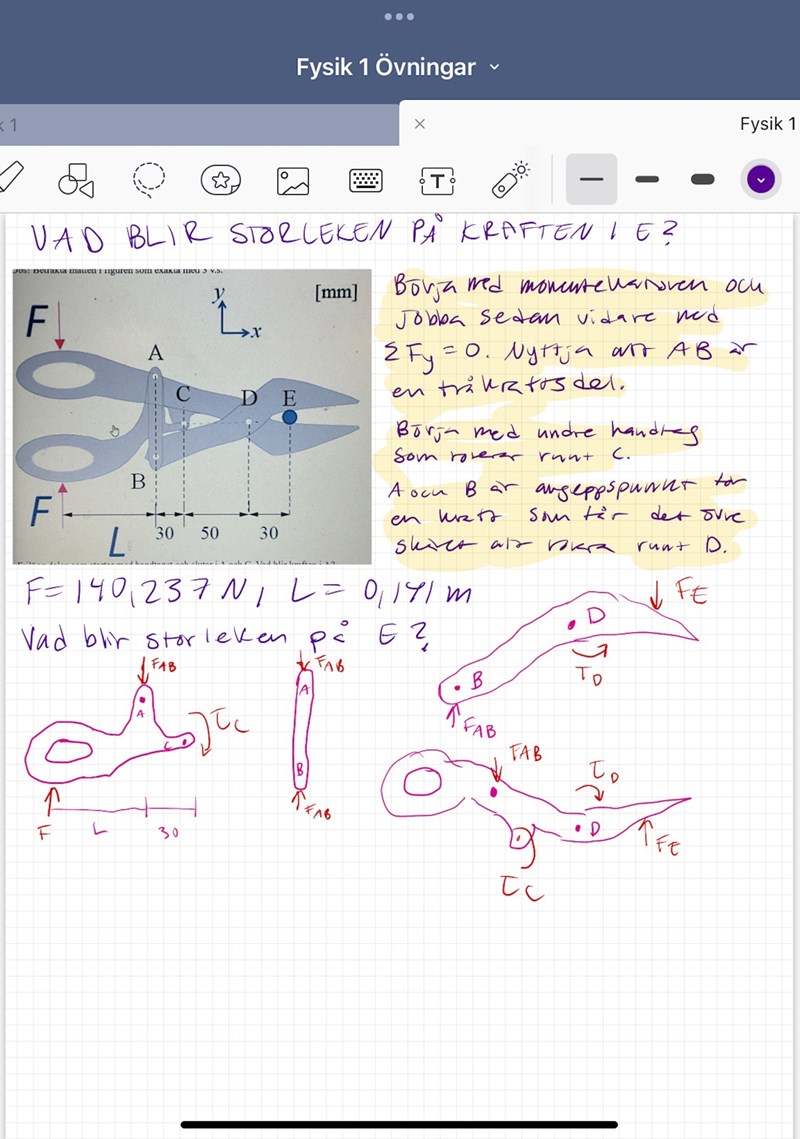 Fysik 1 Övningar
k 1
Fysik 1
VAD BLIR STORLEKEN PÅ KRAFTEN I E?
[mm]
y
x
F
A
C
D
E
B
F
L
30
50
30
Börja med momentekvationen och
jobba sedan vidare med
ΣFy = 0. Nyttja att AB är
en tvåkraftsdel.
Börja med undre handtag
som roterar runt C.
A och B är angeppspunkt för
en kraft som får det övre
skäret att rotera runt D.
F = 140,237 N, L = 0,141 m
Vad blir storleken på E?
FAB
A
C
τC
F
L
30
FAB
A
B
FAB
FE
D
B
τD
FAB
FAB
τD
D
FE
τC